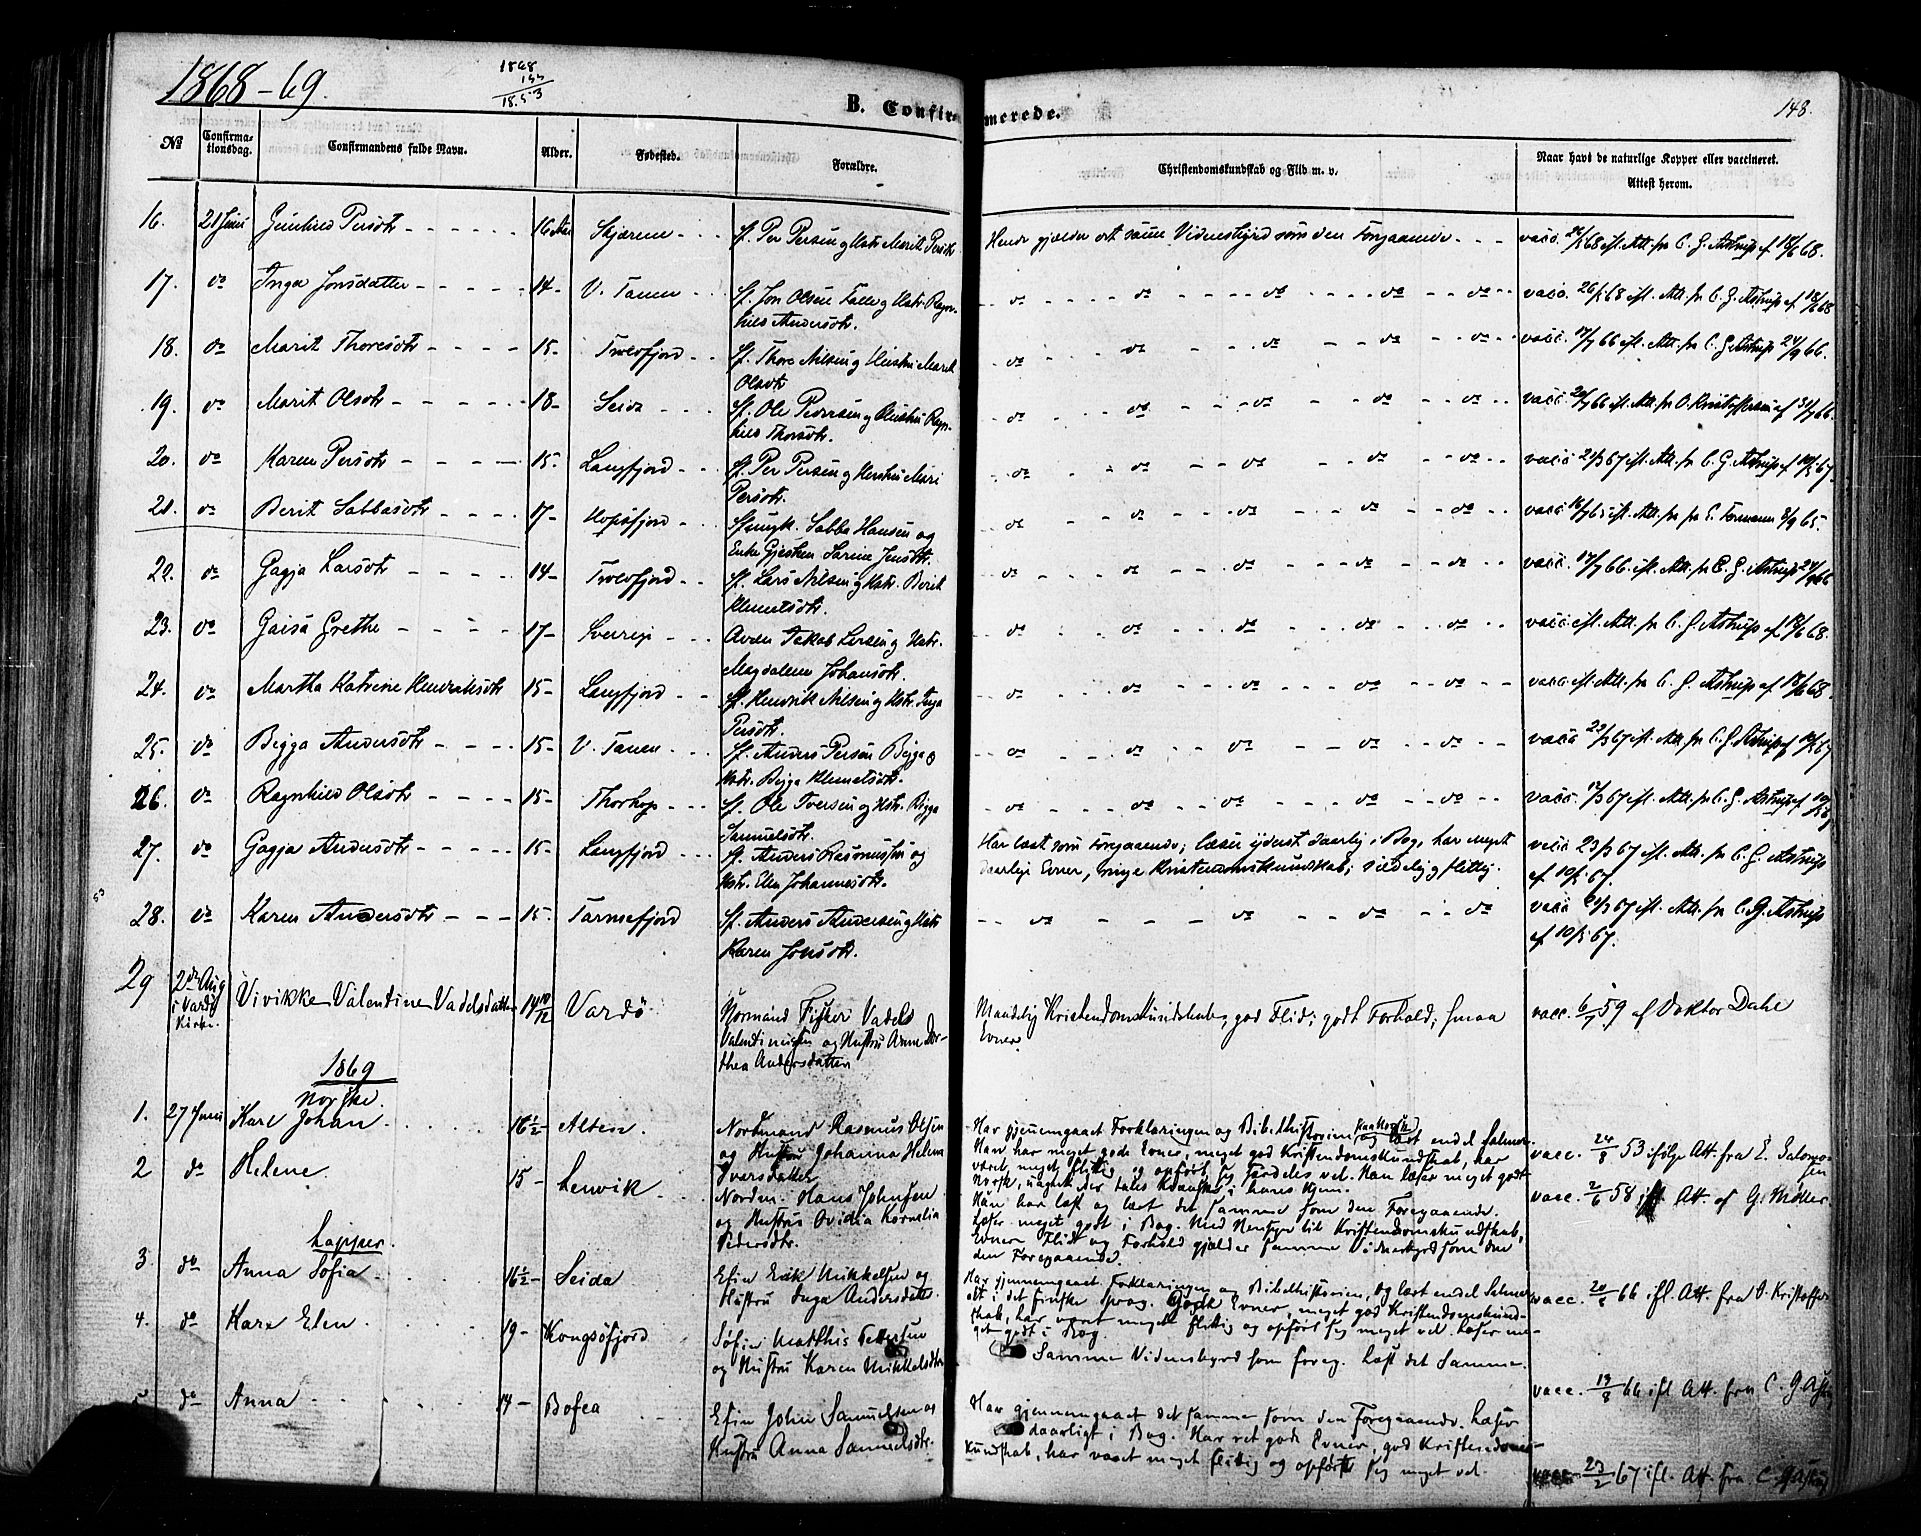 1868-69.
1868
18.53
B. Confirmerede.
148.
№ Confirmationsdag. Confirmandens fulde Navn. Alder. Fødested. Forældre. Christendomskundskab og Flid m. v. Naar havt de naturlige Kopper eller vaccineret. Attest herom.
16. 21 Juni Persdtr 16 Skjærnæ Per Persen og Marit Persdtr Hende gjælder det samme Vidnesbyrd som den Foregaaende vacc. 68 ifl. Att. fr C. G. Astrup af 18/6 68.
17. do Inga Jonsdatter 14 V. Tanen Jon Olsen og Ragn-
hild Andersdtr. do do do do do vacc. 26/5 68 ifl. Att. fr C. G. Astrup af 18/6 68
18. do Marit Thoresdtr 15 Trolfjord Thore Nilsen og Hustru Marit
Olsdtr do do do do do vacc. 17/7 66 ifl. Att. fr C. G. Astrup 24/9 66.
19. do Marit Olsdtr 18 Seida Ole Pedersen og Hustru Ragn-
hild Thorsdtr. do do do do do vacc. 20/7 66 ifl. Att. fr O. Kristoffersen af 31/7 66.
20. do Karen Persdtr 15 Langfjord Per Persen og Hustru Mari
Persdtr. do do do do do vacc 67 ifl. Att. fr C. G. Astrup af 67.
21. do Berit Sabbasdtr 17 Hopsfjord Sabba Hansen og
Enke Gjesken Sarine Jensdtr. do do do do do vacc. 16/7 65 ifl. Att. fra E. Normann 8/9 65.
22. do Gagja Larsdtr 14 Trolfjord Lars Nilsen og Hstr. Berit
Klemetsdtr. do do do do do vacc. 17/7 66 ifl. Att. fr C. G. Astrup 24/9 66
23. do Gaisa Grethe 17 Sverrige Jakob og Hstr.
Magdalene Johansdtr. do do do do do vacc ifl. Att. fr C. G. Astrup af 18/6 68.
24. do Martha Katrine Hendriksdtr 15 Langfjord Hendrik Nilsen og Hstr. Inga
Persdtr. do do do do do vacc ifl. Att. fr C. G. Astrup af 18/6 68.
25. do Bigga Andersdtr 15 V. Tanen Anders Persen Bigga &
Hstr. Bigga Klemetsdtr. do do do do do vacc 67 ifl. Att. fr C. G. Astrup af 67
26. do Ragnhild Olsdtr 15 Thorhop Ole Iversen og Hstr. Bigga
Samuelsdtr. do do do do do vacc. 67 ifl. Att. fr C. G. Astrup af 67
27. do Gagja Andersdtr 15 Langfjord Anders Rasmussen og
Hstr. Elen Johannesdtr. Har læst som Foregaaende; læser yderst daarlig i Bog, har meget
daarlige Evner, ringe Kristendomskundskab; sædelig og flittig. vacc 23/3 67 ifl. Att. fr C. G. Astrup
af 10/5 67.
28. do Karen Andersdtr 15. Tarmefjord Anders Andersen og Hstr
Karen Jonsdtr. do do do do vacc 67 ifl. Att. fr C. G. Astrup
af 10/5 67.
29 2den Aug
i Vardø
Kirke. Vivikke Valentine Vadelsdatter 14 10/12 Vardø Normand Fisker Vadels
Valentinussen og Hustru Anne Dor-
thea Andersdatter Maadelig Kristendomskundskab, god Flid; godt Forhold; smaa
Evner. vacc. 6/7 59 af Doktor Dahl
1869
Norske.
1. 27 Juni Karl Johan 16 1/2 Alten Nordmand Rasmus Olsen
og Hustru Johanna Helene
Iversdatter Har gjennemgaaet Forklaringen og Bibelhistorien paa Norsk og lært endel Salmer.
Han har meget gode Evner, meget god Kristendomskundskab, har
været meget flittig og opført sig særdeles vel. Han læser meget godt
Norsk, uagtet der tales Kvænsk i hans Hjem. vacc. 24/8 53 ifølge Att. fra E. Salomo-
sen
2 do Helene. 15 Lenvik Nordm. Hans Johnsen
og Hustru Ovidia Kornelia
Pedersdtr. Hun har læst og lært det samme som den Foregaaende.
Læser meget godt i Bog. Med Hensyn til Kristendomskundskab,
Evner Flid og Forhold gjælder samme Vidnesbyrd som den
den Foregaaende. vacc. 2/6 58 ifl. Att. af G. Møller.
Lapper.
3. do Anna Sofia 16 1/2 Seida Erik Mikkelsen og
Hustru Inga Andersdatter Har gjennemgaaet Forklaringen og Bibelhistorien, og lært endel Salmer
alt i det finske Sprog. Gode Evner, meget god Kristendomskund-
skab, har været meget flittig og opført sig meget vel. Læser me-
get godt i Bog. vacc. 20/8 66 ifl. Att. fra O. Kristoffer
4. do Kare Elen 19 Kongsøfjord Søfin Matthis Pettersen
og Hustru Karen Mikkelsdtr. Samme Vidnesbyrd som foreg. Læst det Samme. vacc. 13/8 66 ifl Att. fra C. G. Astrup
5 do Anna 14 Bofea John Samuelsen og
Hustru Anna Samuelsdtr. Har gjennemgaaet det samme som den Foregaaende. Læser
daarligt i Bog. Har ret gode Evner, god Kristendoms-
kundskab, har været meget flittig og opført sig meget vel. vacc. 23/2 67 ifl. Att. fra C. G. Astrup